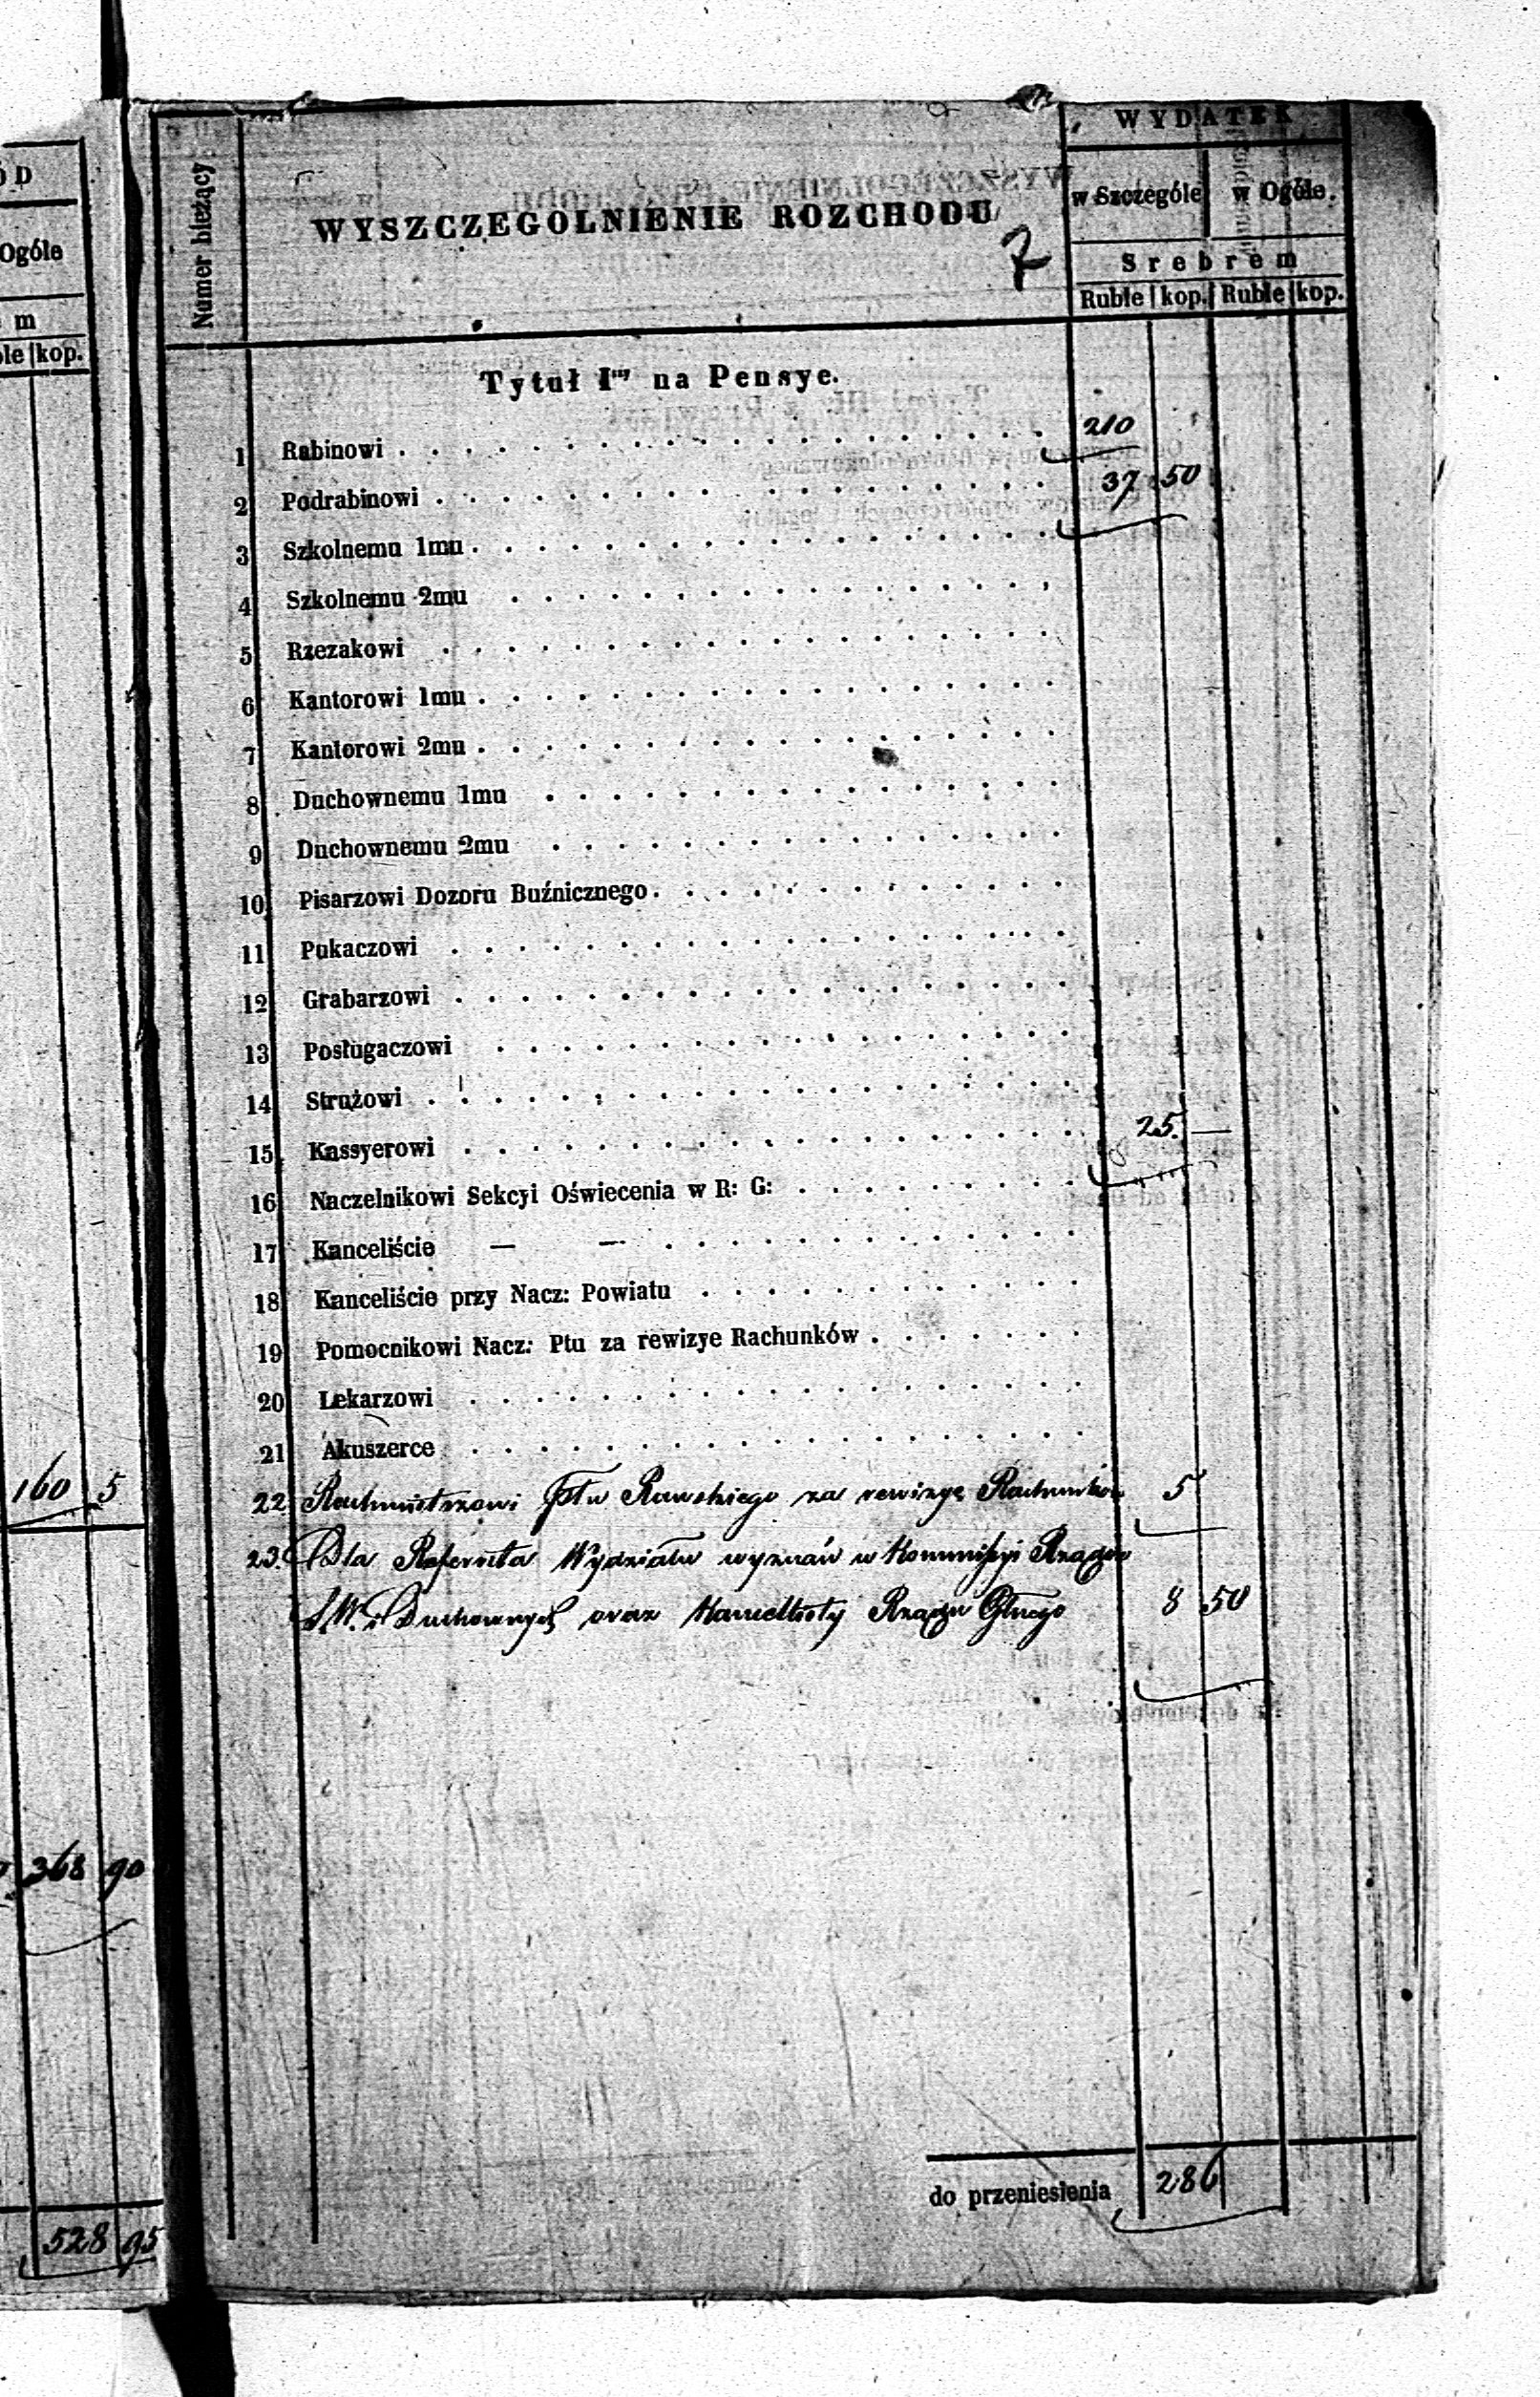 ÓD
Ogóle
m
ble kop.
160 5
368 90
528 95
Numer bieżący
WYSZCZEGOLNIENIE ROZCHODU
7
WYDATEK
w Szczególe w Ogóle.
Srebrem
Ruble kop. Ruble kop.
Tytuł Iszy na Pensye.
1 Rabinowi . . . 210
2 Podrabinowi . . . 37 50
3 Szkolnemu 1mu . . .
4 Szkolnemu 2mu . . .
5 Rzezakowi . . .
6 Kantorowi 1mu . . .
7 Kantorowi 2mu . . .
8 Duchownemu 1mu . . .
9 Duchownemu 2mu . . .
10 Pisarzowi Dozoru Buźnicznego . . .
11 Pukaczowi . . .
12 Grabarzowi . . .
13 Posługaczowi . . .
14 Strużowi . . .
15 Kassyerowi . . . 25. —
16 Naczelnikowi Sekcyi Oświecenia w R: G: . . .
17 Kanceliście — — . . .
18 Kanceliście przy Nacz: Powiatu . . .
19 Pomocnikowi Nacz: Ptu za rewizye Rachunków . . .
20 Lekarzowi . . .
21 Akuszerce . . .
22 Rachmistrzowi Ptu Rawskiego za rewizyę Rachunków 5
23. Dla Referenta Wydziału wyznań w Kommissyi Rządow
S.W. i Duchownych oraz Kancellisty Rządu Głnego 8 50
do przeniesienia 286